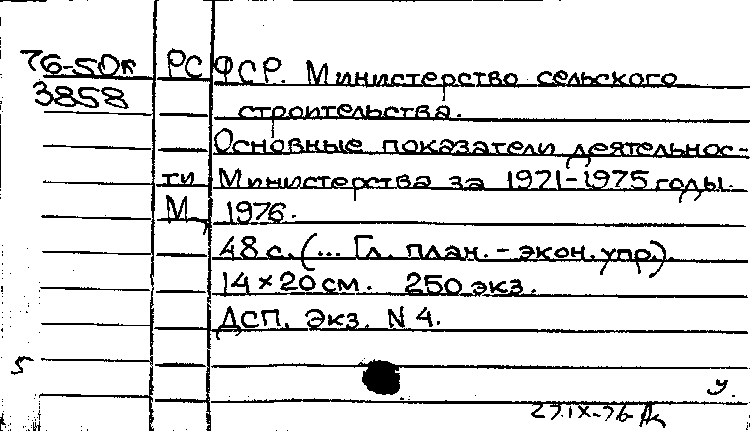 76-50к РСФСР. Министерство сельского
3858 строительства.
Основные показатели деятельнос-
ти Министерства за 1971-1975 годы.
М, 1976.
48 с. (... Гл. план. - экон. упр.).
14 × 20 см. 250 экз.
ДСП. Экз. N 4.
5
у.
27.IX-76